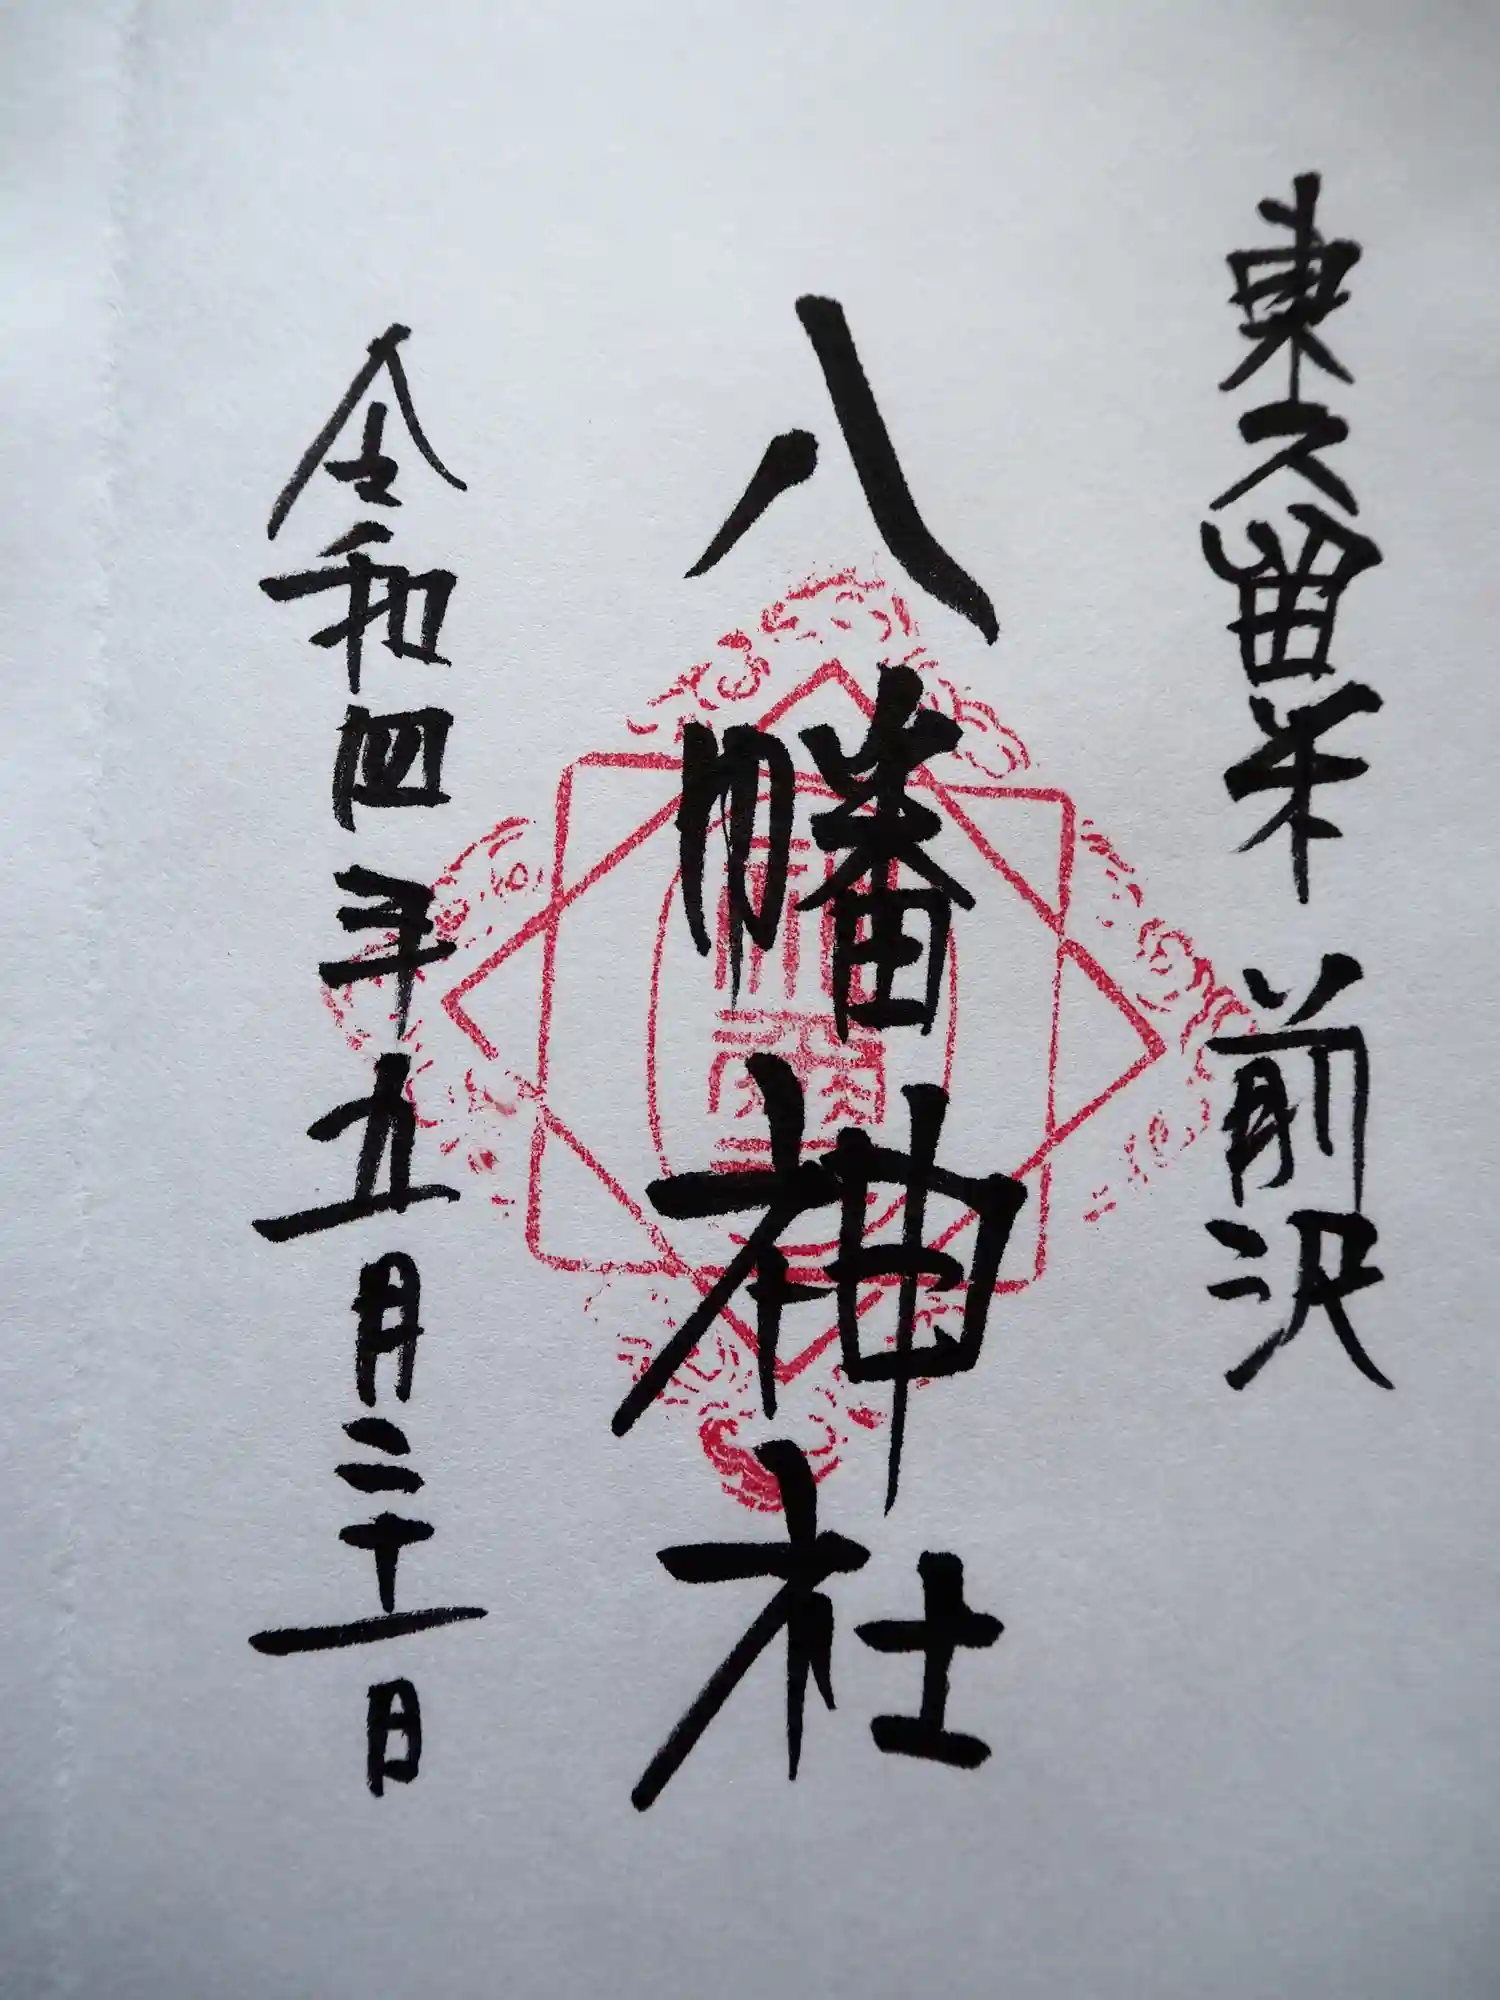 東久留米 前沢
八幡神社
令和四年五月二十一日